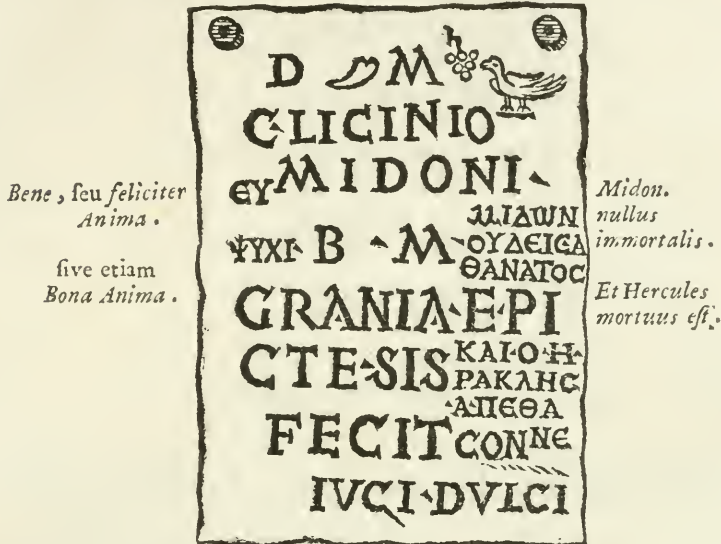 Bene, seu feliciter
Anima.
sive etiam
Bona Anima.
D M
C·LICINIO
ЄΥ MIDONI·
ΨΥΧΙ· B · M·
ΜΙΔΩΝ
ΟΥΔΕΙϹΑ
ΘΑΝΑΤΟϹ
GRANIA·E·PI
CTE·SIS
ΚΑΙ·Ο·Η·
ΡΑΚΛΗϹ
·Α·ΠЄΘΑ
ΝЄ
FECIT CON
IVGI·DVLCI
Midon.
nullus
immortalis.
Et Hercules
mortuus est.